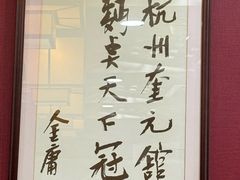 杭州奎元館
麵點天下冠
金庸